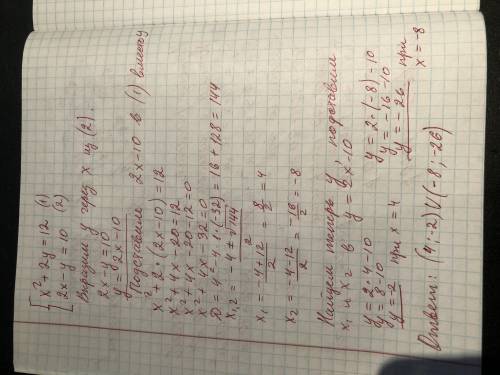 x² + 2y = 12 (1)
2x - y = 10 (2)
Выразим y через x из (2).
2x - y = 10
y = 2x - 10
Подставим 2x - 10 в (1) вместо y
x² + 2 · (2x - 10) = 12
x² + 4x - 20 = 12
x² + 4x - 20 - 12 = 0
x² + 4x - 32 = 0
D = 4² - 4 · 1 · (-32) = 16 + 128 = 144
x₁,₂ = (-4 ± √144)/2
x₁ = (-4 + 12)/2 = 8/2 = 4
x₂ = (-4 - 12)/2 = -16/2 = -8
Найдем теперь y, подставим
x₁ и x₂ в y = 2x - 10
y = 2 · 4 - 10
y = 8 - 10
y = -2 при x = 4
y = 2 · (-8) - 10
y = -16 - 10
y = -26 при x = -8
Ответ: (4; -2) V (-8; -26)